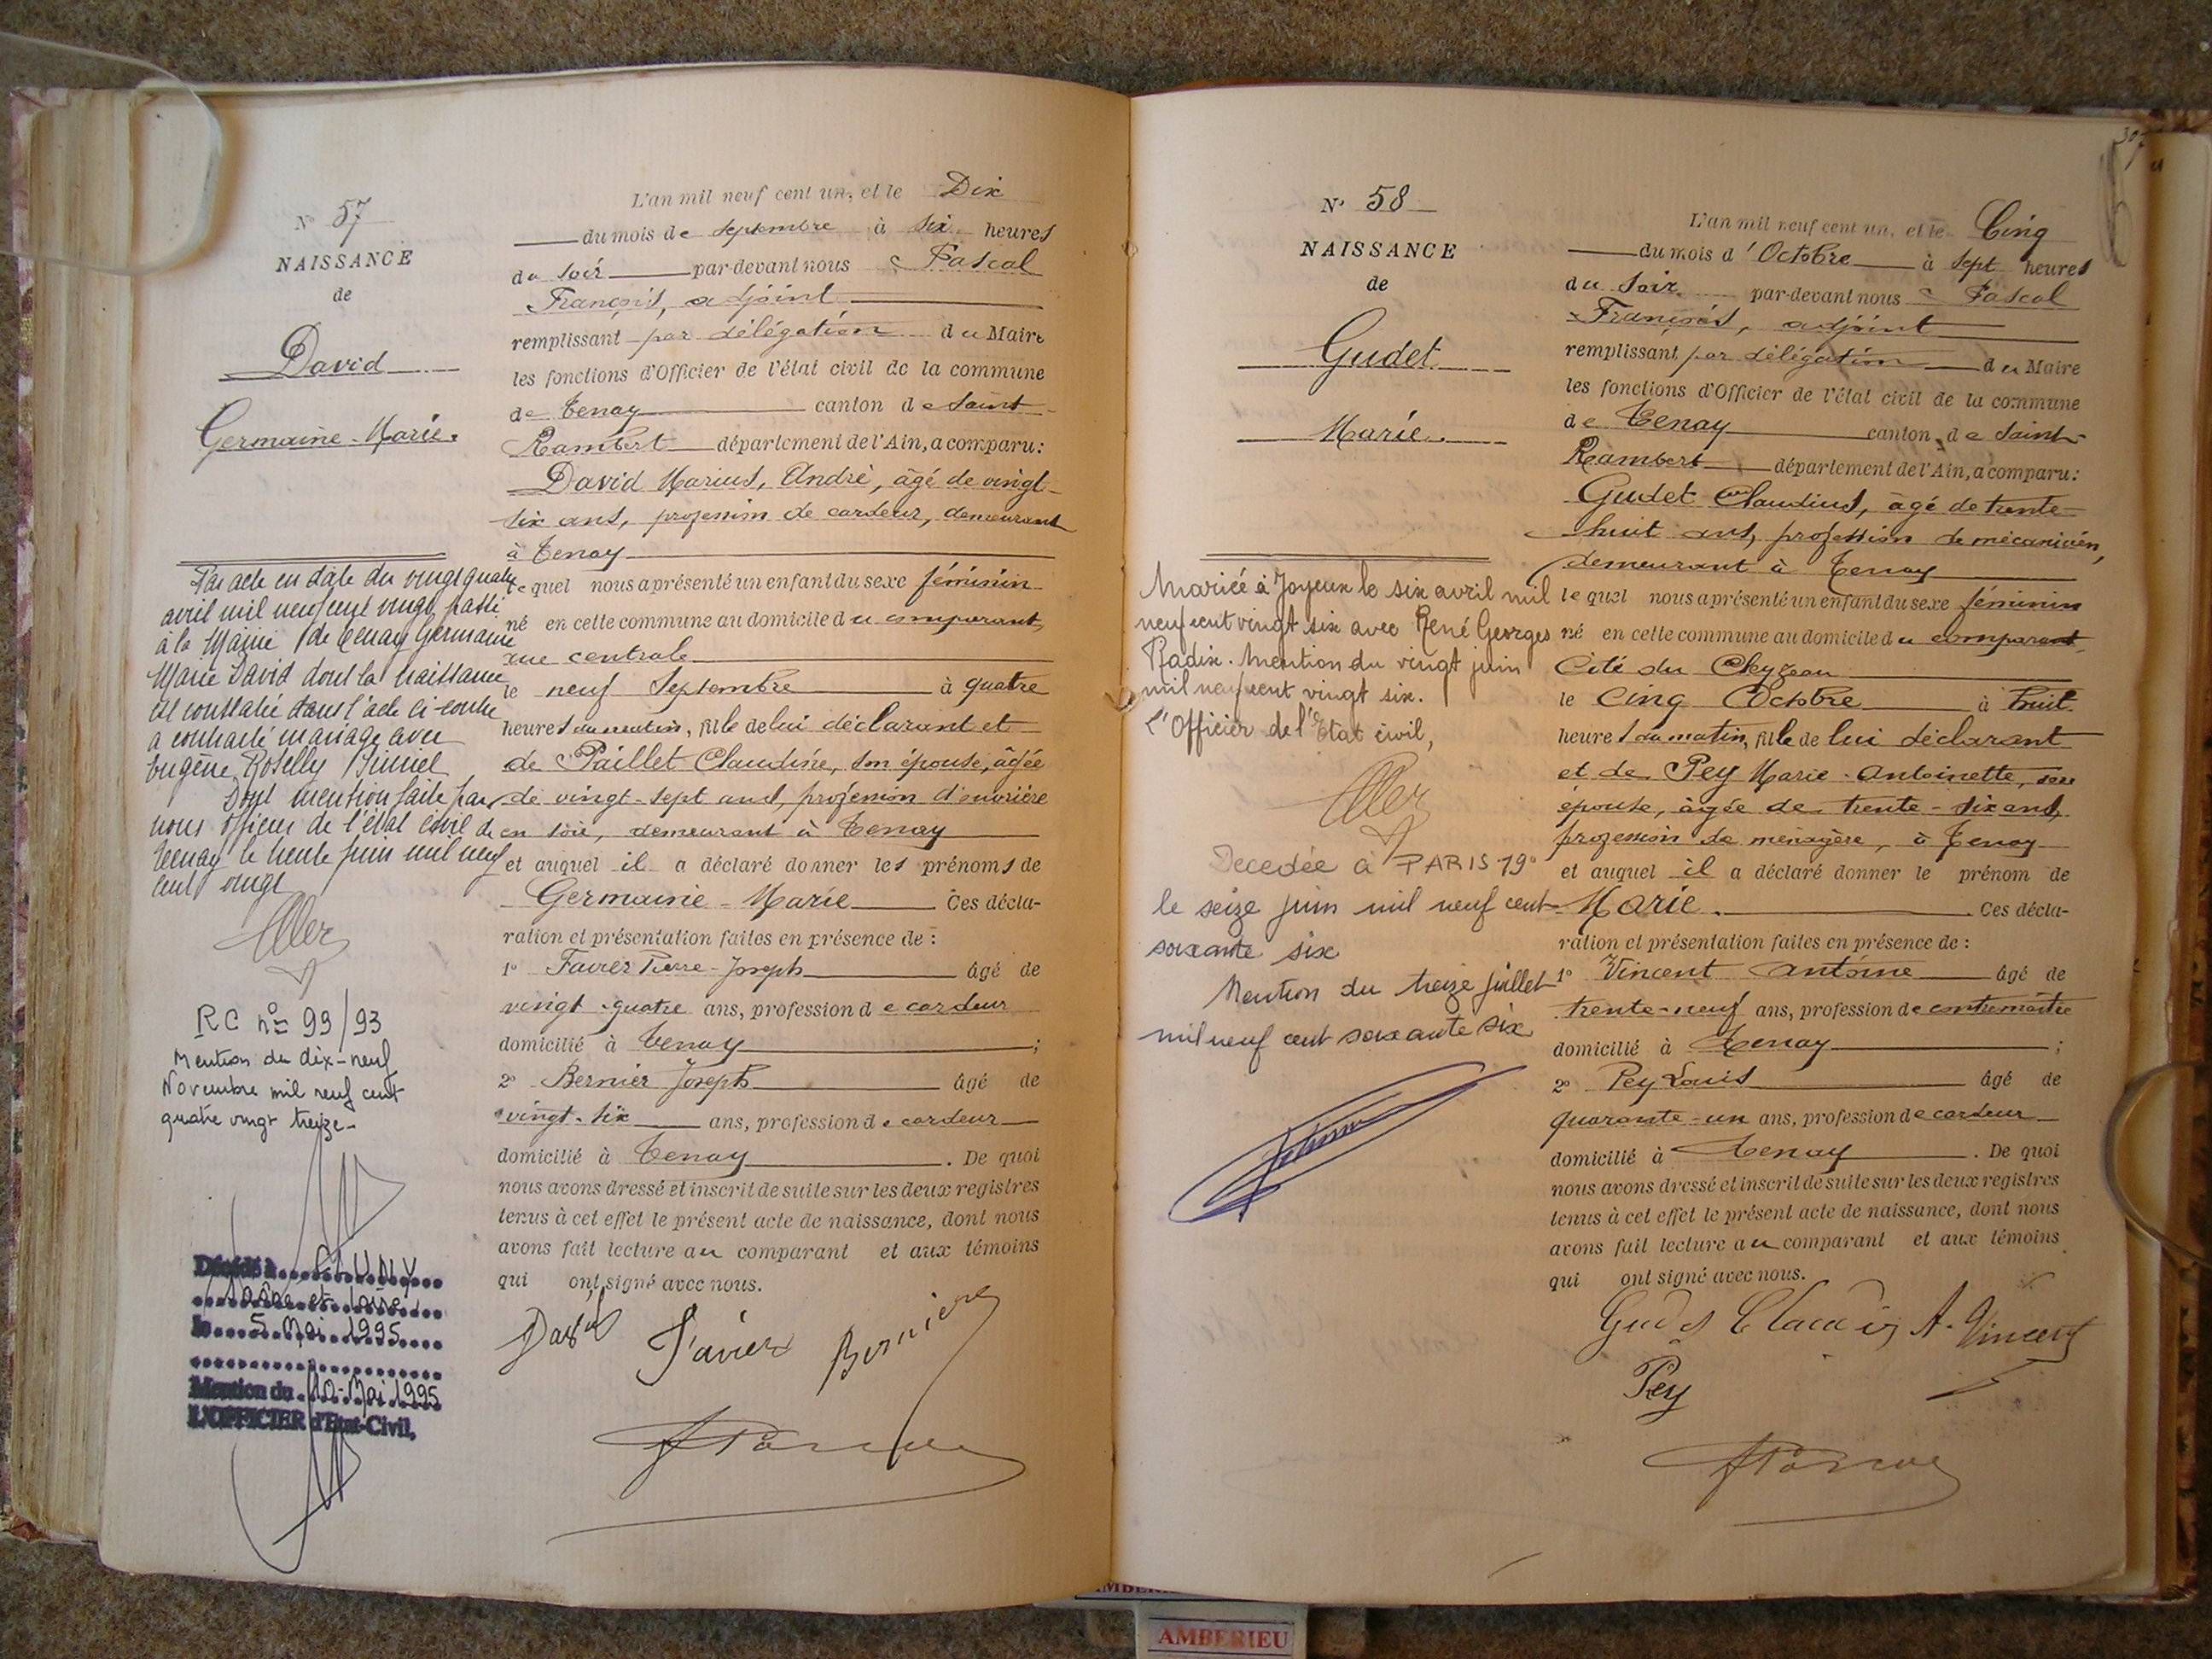 N° 57
NAISSANCE
de
David
Germaine-Marie.
Par acte en date du vingt quatre
avril mil neuf cent vingt, passé
à la Mairie de Tenay Germaine
Marie David dont la naissance
est constatée dans l'acte ci-contre
a contracté mariage avec
Eugène Roselly
Dont mention faite par
nous officier de l'état civil de
Tenay le trente juin mil neuf
cent vingt
RC n° 99/93
Mention du dix-neuf
Novembre mil neuf cent
quatre vingt treize-
Décédé à CLUNY
(Saône et Loire)
le 5 Mai 1995
Mention du 10 Mai 1995
L'OFFICIER d'Etat-Civil,
L'an mil neuf cent un, et le Dix
du mois de septembre à six heures
du soir par-devant nous Pascal
François, adjoint
remplissant par délégation du Maire
les fonctions d'Officier de l'état civil de la commune
de Tenay canton de Saint-
Rambert département de l'Ain, a comparu:
David Marius, André, âgé de vingt-
six ans, profession de cardeur, demeurant
à Tenay
lequel nous a présenté un enfant du sexe féminin
né en cette commune au domicile du comparant,
rue centrale
le neuf Septembre à quatre
heures du matin, fille de lui déclarant et
de Paillet Claudine, son épouse, âgée
de vingt-sept ans, profession d'ouvrière
en soie, demeurant à Tenay
et auquel il a déclaré donner les prénoms de
Germaine-Marie Ces décla-
ration et présentation faites en présence de :
1° Favier Pierre-Joseph âgé de
vingt-quatre ans, profession de cardeur
domicilié à Tenay ;
2° Bernier Joseph âgé de
vingt-six ans, profession de cardeur
domicilié à Tenay . De quoi
nous avons dressé et inscrit de suite sur les deux registres
tenus à cet effet le présent acte de naissance, dont nous
avons fait lecture au comparant et aux témoins
qui ont signé avec nous.
David Favier Bernier
N° 58
NAISSANCE
de
Gudet
Marie.
Mariée à Joyeux le six avril mil
neuf cent vingt six avec René Georges
Radix. Mention du vingt juin
mil neuf cent vingt six.
L'Officier de l'Etat civil,
Decedée à PARIS 19°
le seize juin mil neuf cent
soixante six
Mention du treize juillet
mil neuf cent soixante six
L'an mil neuf cent un, et le Cinq
du mois d'Octobre à sept heures
du soir par-devant nous Pascal
François, adjoint
remplissant par délégation du Maire
les fonctions d'Officier de l'état civil de la commune
de Tenay canton de Saint-
Rambert département de l'Ain, a comparu:
Gudet Claudius, âgé de trente-
huit ans, profession de mécanicien,
demeurant à Tenay
lequel nous a présenté un enfant du sexe féminin
né en cette commune au domicile du comparant,
Cité du
le Cinq Octobre à huit
heures du matin, fille de lui déclarant
et de Pey Marie-Antoinette, son
épouse, âgée de trente-six ans,
profession de ménagère, à Tenay
et auquel il a déclaré donner le prénom de
Marie. Ces décla-
ration et présentation faites en présence de :
1° Vincent Antoine âgé de
trente-neuf ans, profession de contremaître
domicilié à Tenay ;
2° Pey Louis âgé de
quarante-un ans, profession de cardeur
domicilié à Tenay . De quoi
nous avons dressé et inscrit de suite sur les deux registres
tenus à cet effet le présent acte de naissance, dont nous
avons fait lecture au comparant et aux témoins
qui ont signé avec nous.
A. Vincent
Pey
AMBERIEU